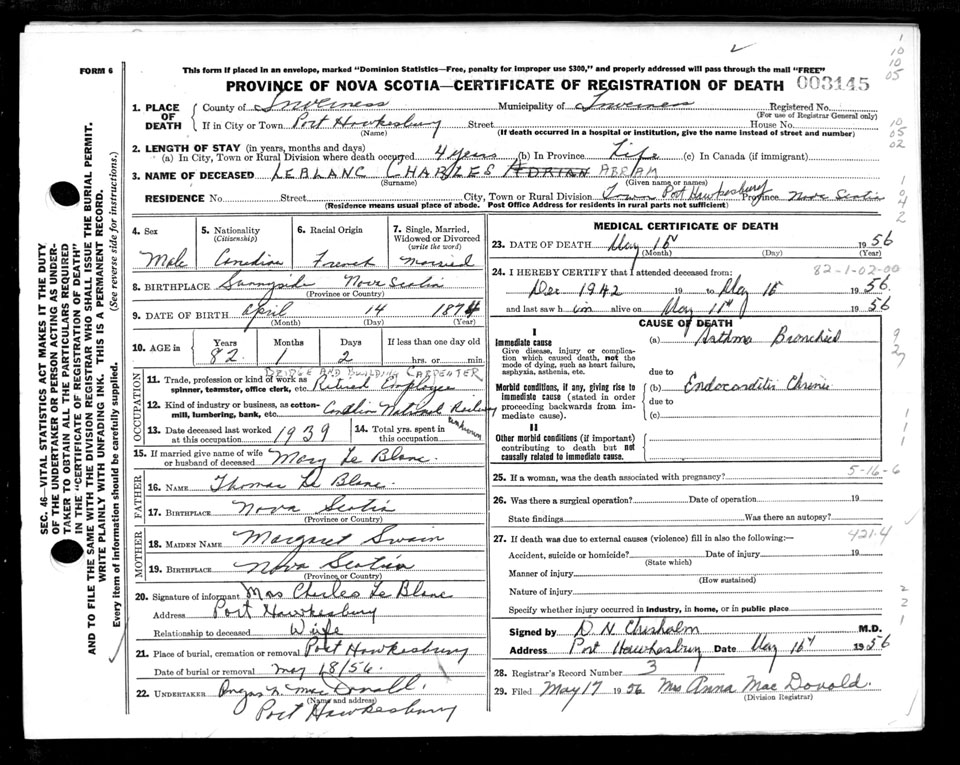 1
10
10
05
FORM 6
This form if placed in an envelope, marked "Dominion Statistics—Free, penalty for improper use $300," and properly addressed will pass through the mail "FREE"
PROVINCE OF NOVA SCOTIA—CERTIFICATE OF REGISTRATION OF DEATH 003145
1. PLACE OF DEATH
County of Inverness Municipality of Inverness Registered No.
(For use of Registrar General only)
If in City or Town Port Hawkesbury Street House No.
(Name) (If death occurred in a hospital or institution, give the name instead of street and number)
10
05
02
2. LENGTH OF STAY (in years, months and days)
(a) In City, Town or Rural Division where death occurred 4 years (b) In Province Life (c) In Canada (if immigrant)
3. NAME OF DECEASED LEBLANC CHARLES ADRIAN ABRAM
(Surname) (Given name or names)
RESIDENCE No. Street City, Town or Rural Division Town Port Hawkesbury Province Nova Scotia
(Residence means usual place of abode. Post Office Address for residents in rural parts not sufficient)
1
0
4
2
SEC. 46—VITAL STATISTICS ACT MAKES IT THE DUTY
OF THE UNDERTAKER OR PERSON ACTING AS UNDER-
TAKER TO OBTAIN ALL THE PARTICULARS REQUIRED
IN THE "CERTIFICATE OF REGISTRATION OF DEATH"
AND TO FILE THE SAME WITH THE DIVISION REGISTRAR WHO SHALL ISSUE THE BURIAL PERMIT.
WRITE PLAINLY WITH UNFADING INK. THIS IS A PERMANENT RECORD.
Every item of information should be carefully supplied. (See reverse side for instructions.)
4. Sex
Male
5. Nationality
(Citizenship)
Canadian
6. Racial Origin
French
7. Single, Married,
Widowed or Divorced
(write the word)
Married
8. BIRTHPLACE Sunnyside Nova Scotia
(Province or Country)
9. DATE OF BIRTH April 14 1874
(Month) (Day) (Year)
10. AGE in
Years Months Days If less than one day old
82 1 2 hrs. or min.
OCCUPATION
BRIDGE AND BUILDING CARPENTER
11. Trade, profession or kind of work as
spinner, teamster, office clerk, etc. Retired Employee
12. Kind of industry or business, as cotton-
mill, lumbering, bank, etc. Canadian National Railway
13. Date deceased last worked
at this occupation 1939
14. Total yrs. spent in
this occupation unknown
15. If married give name of wife
or husband of deceased Mary Le Blanc.
FATHER
16. NAME Thomas Le Blanc.
17. BIRTHPLACE Nova Scotia
(Province or Country)
MOTHER
18. MAIDEN NAME Margaret Swain
19. BIRTHPLACE Nova Scotia
(Province or Country)
20. Signature of informant Mrs Charles Le Blanc
Address Port Hawkesbury
Relationship to deceased Wife
21. Place of burial, cremation or removal Port Hawkesbury
Date of burial or removal May 18/56.
22. UNDERTAKER Angus N. MacDonald.
(Name and address)
Port Hawkesbury
MEDICAL CERTIFICATE OF DEATH
23. DATE OF DEATH May 15 1956
(Month) (Day) (Year)
24. I HEREBY CERTIFY that I attended deceased from: 82-1-02-00
Dec 1942 19 to May 15 1956.
and last saw him alive on May 11 1956
CAUSE OF DEATH
I
Immediate cause
Give disease, injury or complica-
tion which caused death, not the
mode of dying, such as heart failure,
asphyxia, asthenia, etc.
(a) Asthma Bronchial
due to
Morbid conditions, if any, giving rise to
immediate cause (stated in order
proceeding backwards from im-
mediate cause).
(b) Endocarditis Chronic
due to
(c)
II
Other morbid conditions (if important)
contributing to death but not
causally related to immediate cause.
9
2
1
1
1
5-16-6
25. If a woman, was the death associated with pregnancy?
26. Was there a surgical operation? Date of operation 19
State findings Was there an autopsy?
27. If death was due to external causes (violence) fill in also the following:— 421.4
Accident, suicide or homicide? Date of injury 19
(State which)
Manner of injury
(How sustained)
Nature of injury
Specify whether injury occurred in industry, in home, or in public place
2
2
1
Signed by D. N. Chisholm M.D.
Address Port Hawkesbury Date May 16 1956
28. Registrar's Record Number 3
29. Filed May 17 1956 Mrs Anna MacDonald.
(Division Registrar)